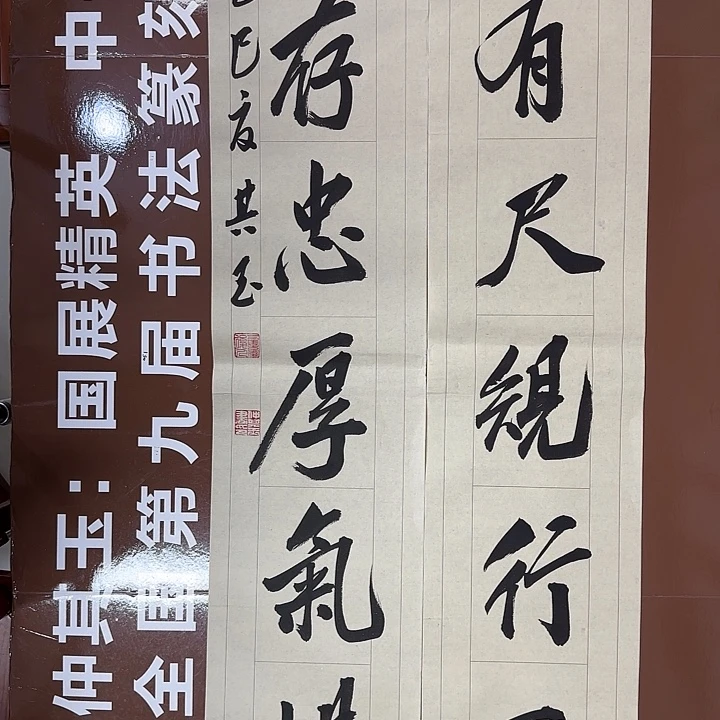 有尺規行
存忠厚氣
巳夏其玉
仲其玉：国展精英 中
全国第九届书法篆刻